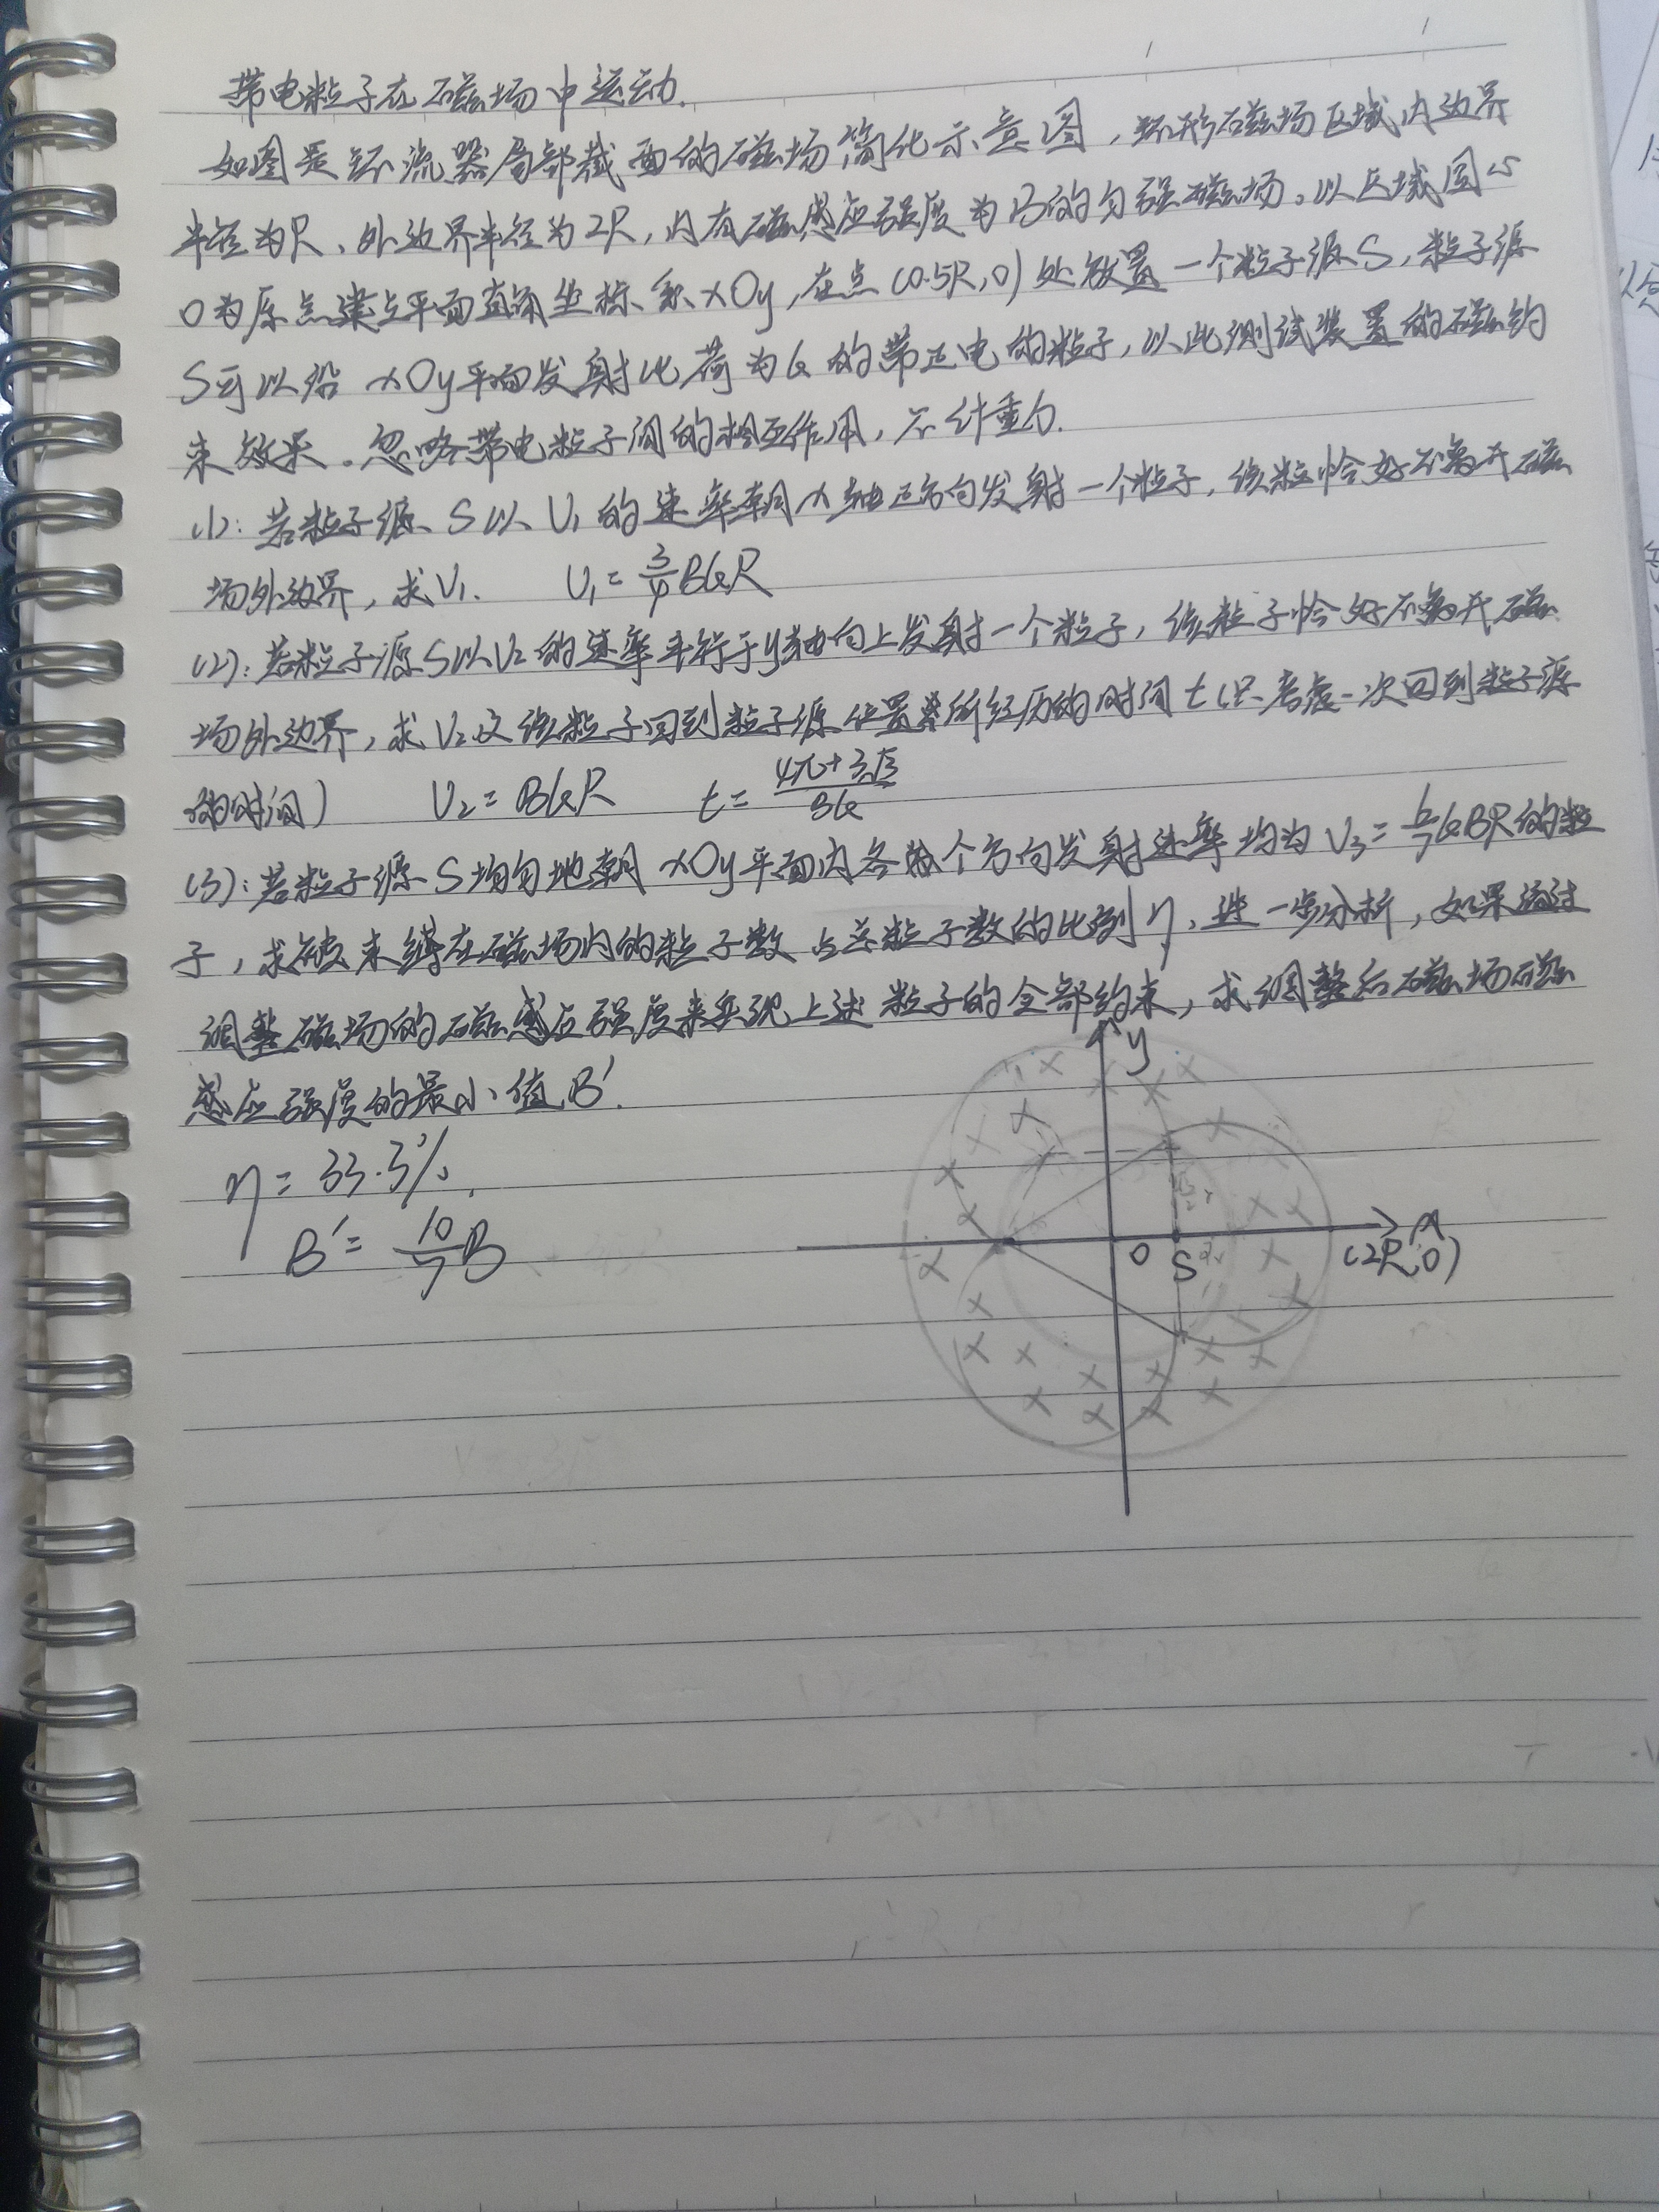 带电粒子在磁场中运动.
如图是环流器局部截面的磁场简化示意图，环形磁场区域内边界
半径为R、外边界半径为2R，内有磁感应强度为B的匀强磁场。以区域圆心
O为原点建立平面直角坐标系xOy，在点(0.5R,0)处放置一个粒子源S，粒子源
S可以沿xOy平面发射比荷为k的带正电的粒子，以此测试装置的磁约
束效果。忽略带电粒子间的相互作用，不计重力.
(1)：若粒子源S以V₁的速率朝x轴正方向发射一个粒子，该粒恰好不离开磁
场外边界，求V₁. V₁=3/4BkR
(2)：若粒子源S以V₂的速率平行于y轴向上发射一个粒子，该粒子恰好不离开磁
场外边界，求V₂及该粒子回到粒子源位置所经历的时间t(只考虑一次回到粒子源
的时间) V₂=BkR t=(4π+3√3)/Bk
(3)：若粒子源S均匀地朝xOy平面内各个方向发射速率均为V₃=6/7kBR的粒
子，求被束缚在磁场内的粒子数占总粒子数的比例η，进一步分析，如果通过
调整磁场的磁感应强度来实现上述粒子的全部约束，求调整后磁场磁
感应强度的最小值B′.
η=33.3%.
B′=10/7B
y
x
O
S
(2R,0)